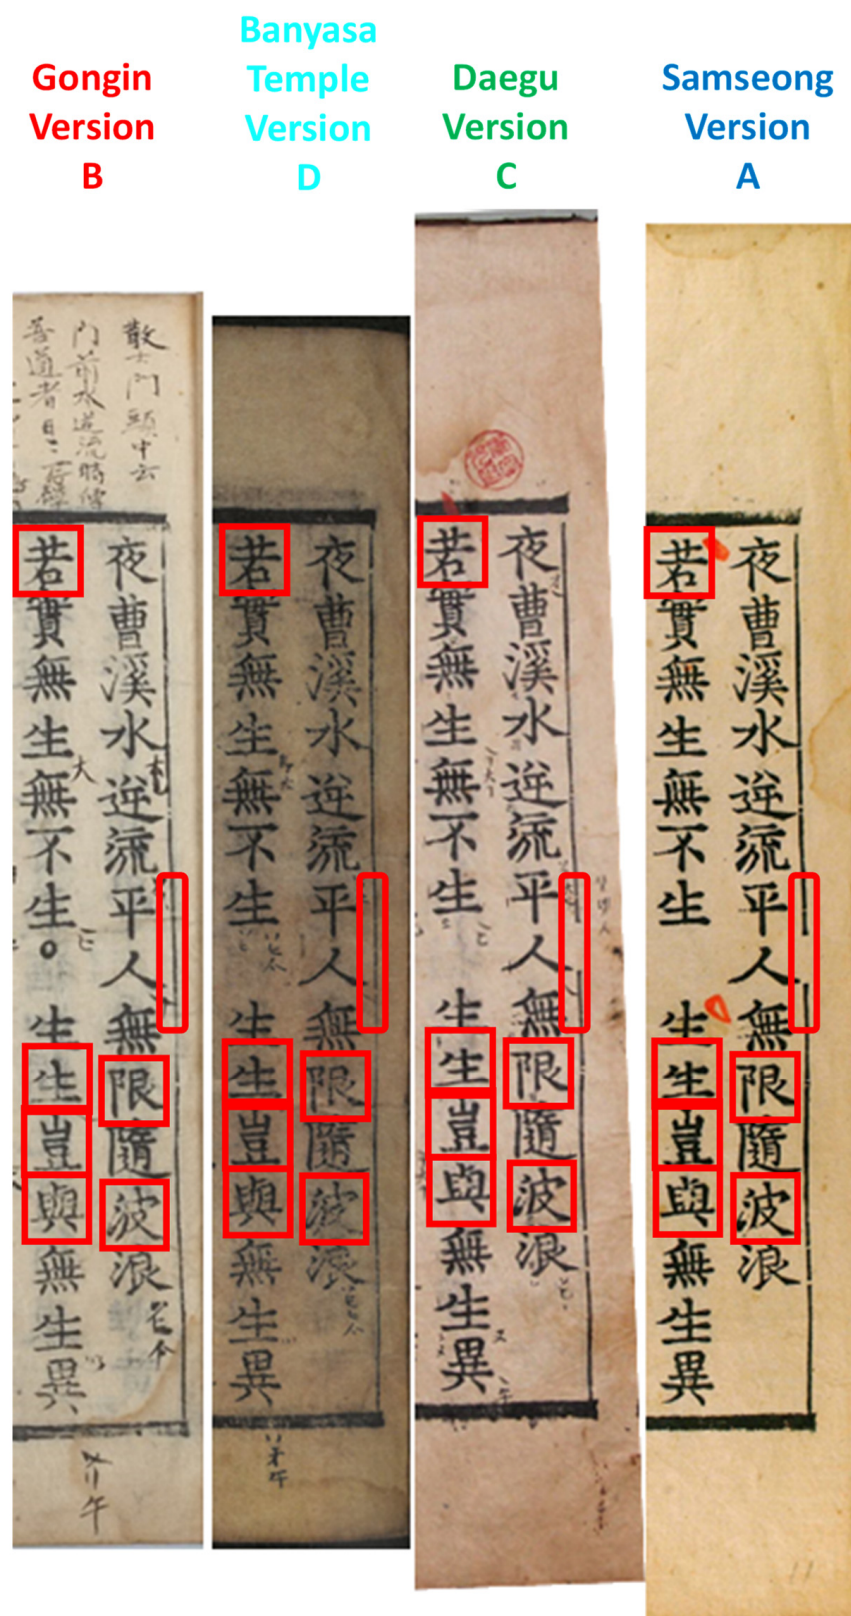 Gongin
Version
B
Banyasa
Temple
Version
D
Daegu
Version
C
Samseong
Version
A
門前水逆流時
善道者日
夜曹溪水逆流平人無限隨波浪
若實無生無不生 生生豈與無生異
夜曹溪水逆流平人無限隨波浪
若實無生無不生 生生豈與無生異
夜曹溪水逆流平人無限隨波浪
若實無生無不生 生生豈與無生異
夜曹溪水逆流平人無限隨波浪
若實無生無不生 生生豈與無生異